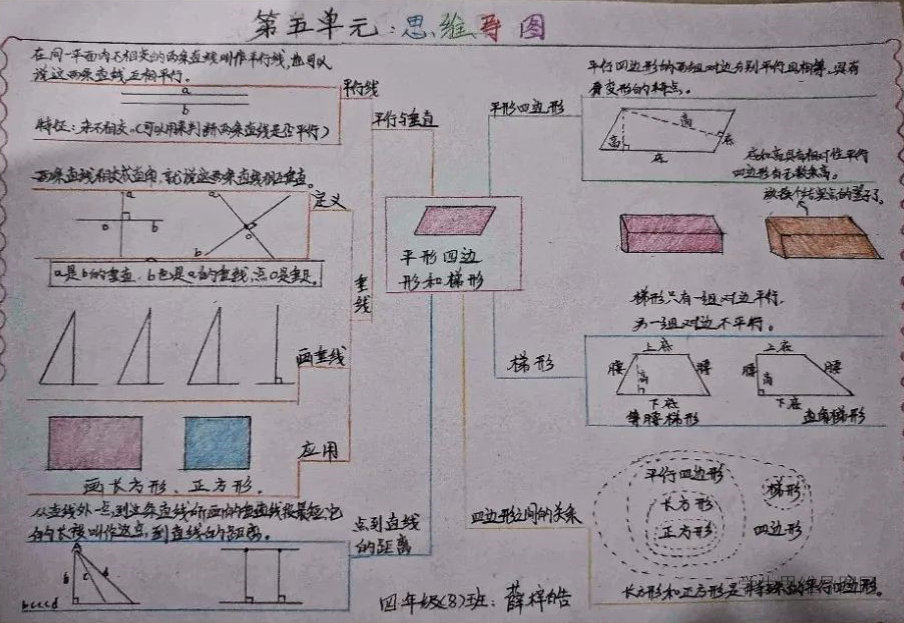 第五单元:思维导图
在同一平面内不相交的两条直线叫作平行线,也可以
说这两条直线互相平行。
a
b
特征:永不相交。(可以用来判断两条直线是否平行)
平行线
平行与垂直
两条直线相交成直角,就说这两条直线互相垂直。
定义
a
o
b
a
o
b
a是b的垂直,b也是a的垂线,点O是垂足。
垂线
画垂线
应用
画长方形、正方形。
从直线外一点到这条直线所画的垂直线段最短,它
的长度叫作这点到直线的距离。
点到直线
的距离
b
c
d
b<c<d
平形四边
形和梯形
平形四边形
平行四边形的两组对边分别平行且相等,具有
易变形的特点。
高
高
底
底
底和高具有相对性平行
四边形有无数条高。
梯形只有一组对边平行,
另一组对边不平行。
梯形
上底
腰
高
腰
下底
等腰梯形
上底
腰
高
腰
下底
直角梯形
四边形之间的关系
平行四边形
长方形
正方形
梯形
四边形
长方形和正方形是特殊的平行四边形。
四年级(8)班:薛梓皓